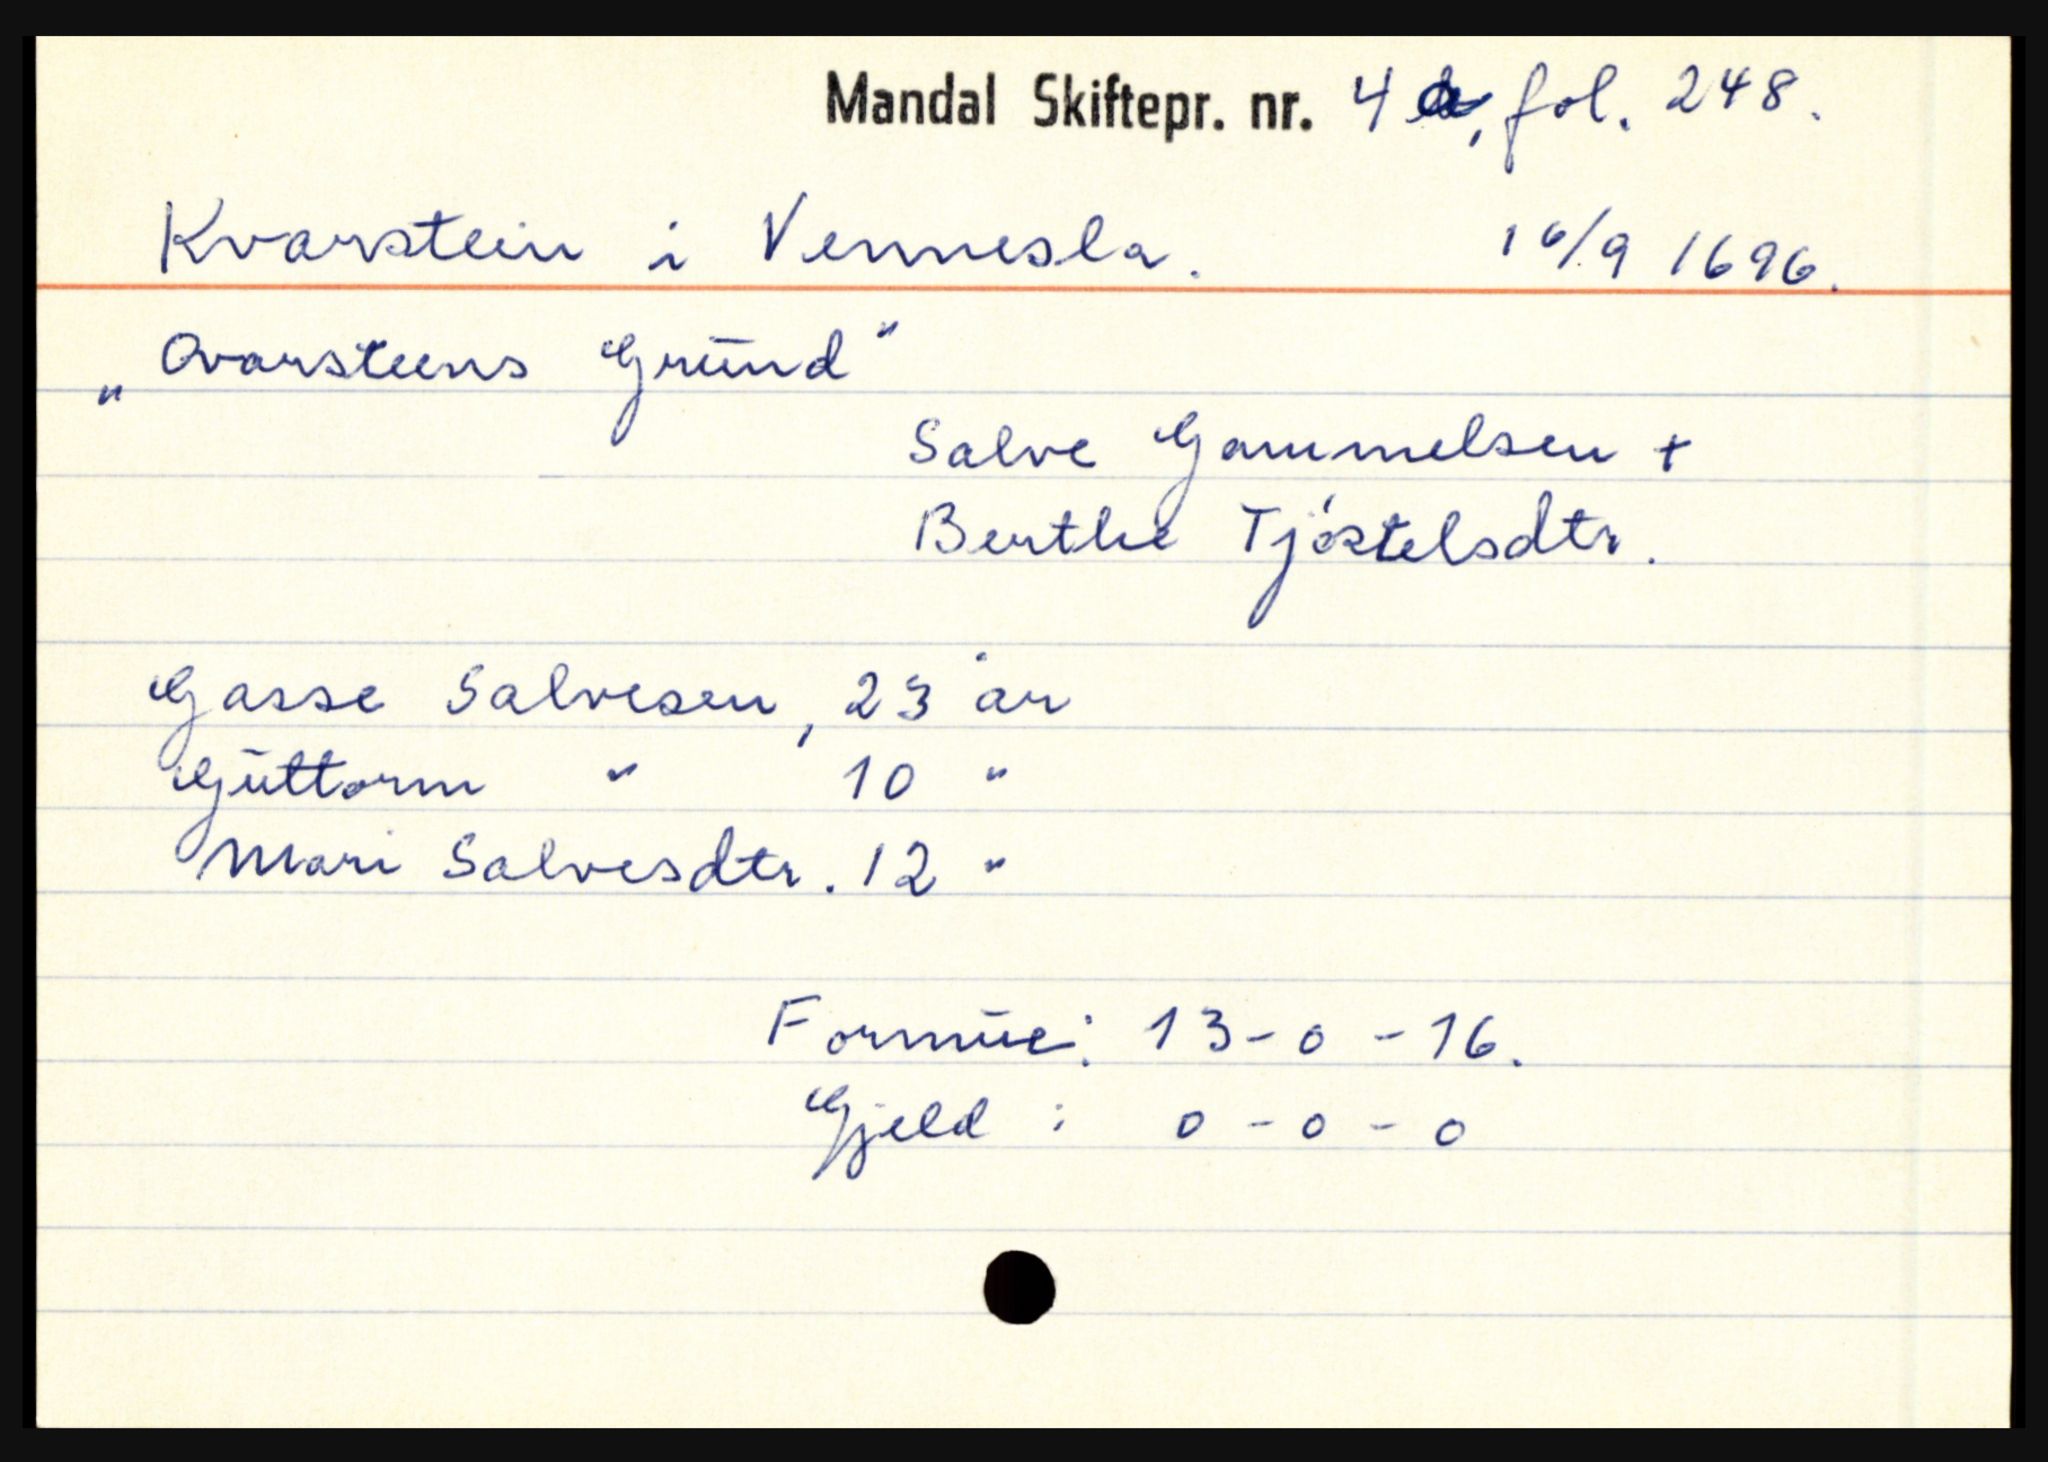 Mandal Skiftepr. nr. 4 a, fol. 248.
Kvarstein i Vennesla. 16/9 1696.
„Qvarsteens Grund“
Salve Gammelsen +
Berthe Tjøstelsdtr.
Gasse Salvesen, 23 år
Guttorm " 10 "
Mari Salvesdtr. 12 "
Formue: 13-0-16.
Gjeld: 0-0-0